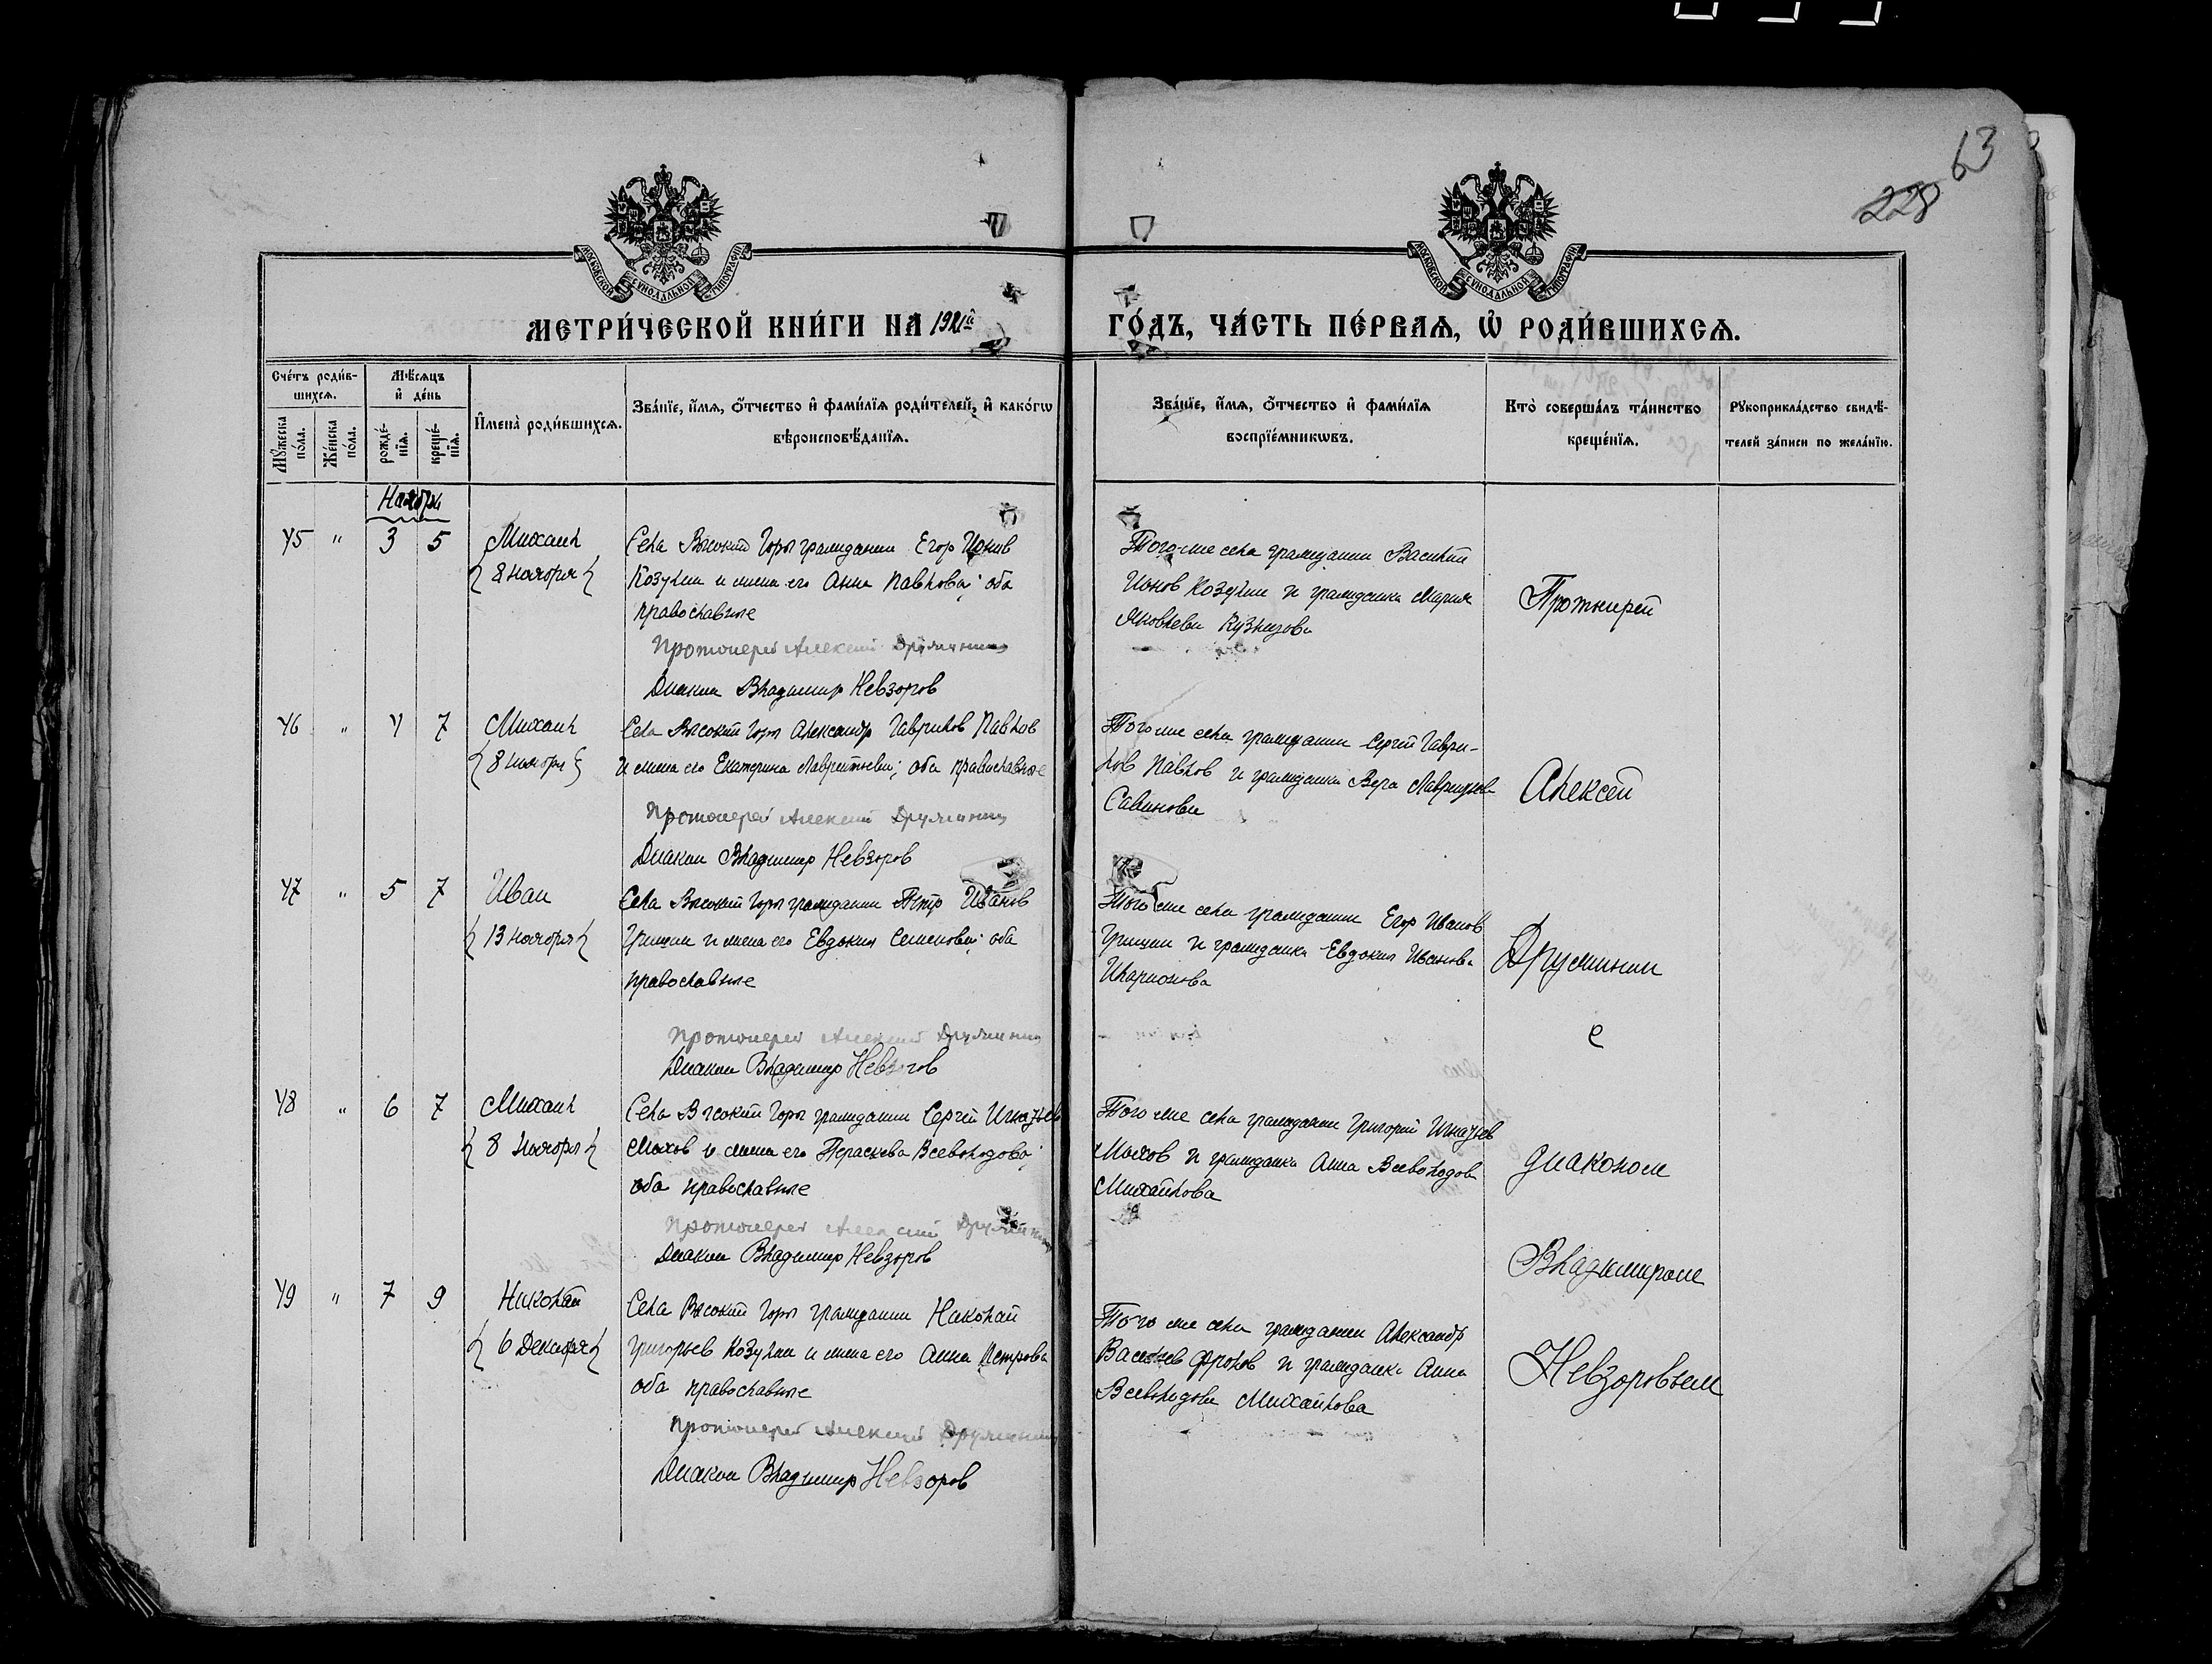 63
228
МОСКОВСКОЙ СѴНОДАЛЬНОЙ ТИПОГРАФІИ
МОСКОВСКОЙ СѴНОДАЛЬНОЙ ТИПОГРАФІИ
МЕТРИ́ЧЕСКОЙ КНИ́ГИ НА 1921й ГО́ДЪ, ЧА́СТЬ ПЕ́РВАѦ, Ѡ РОДИ́ВШИХСѦ.
Сче́тъ роди́в-
шихсѧ.
Мꙋ́жеска
по́ла.
Же́нска
по́ла.
Мѣ́сѧцъ
и҆ де́нь
рожде́-
нїѧ.
креще́-
нїѧ.
И҆мена̀ роди́вшихсѧ.
Зва́нїе, и҆́мѧ, ѻ҆́тчество и҆ фами́лїѧ роди́телей, и҆ како́гѡ
вѣроисповѣ́данїѧ.
Зва́нїе, и҆́мѧ, ѻ҆́тчество и҆ фами́лїѧ
воспрїе́мникѡвъ.
Кто̀ соверша́лъ та́инство
креще́нїѧ.
Рꙋкоприкла́дство свидѣ́-
телей за́писи по жела́нїю.
Ноября
45 " 3 5 Михаил
8 ноября
Села Высокий Горы гражданин Егор Ионов
Козулин и жена его Анна Павлова; оба
православные
Протоиерей Алексий Дружинин
Диакон Владимир Невзоров
Того-же села гражданин Василий
Ионов Козулин и гражданка Мария
Яковлева Кузнецова
46 " 4 7 Михаил
8 ноября
Села Высокий Горы Александр Гаврилов Павлов
и жена его Екатерина Лаврентьева; оба православные
Протоиерей Алексий Дружинин
Диакон Владимир Невзоров
Того же села гражданин Сергей Гаври-
лов Павлов и гражданка Вера
Савинова
47 " 5 7 Иван
13 ноября
Села Высокий Горы гражданин Петр Иванов
Гришин и жена его Евдокия Семенова; оба
православные
Протоиерей Алексий Дружинин
Диакон Владимир Невзоров
Того же села гражданин Егор Иванов
Гришин и гражданка Евдокия Иванова
Иларионова
48 " 6 7 Михаил
8 ноября
Села Высокий Горы гражданин Сергей Игнатьев
и жена его Параскева Всеволодова;
оба православные
Протоиерей Алексий Дружинин
Диакон Владимир Невзоров
Того же села гражданин Григорий Игнатьев
и гражданка Анна Всеволодова
Михайлова
49 " 7 9 Николай
6 Декабря
Села Высокий Горы гражданин Николай
Григорьев Козулин и жена его Анна Петрова
оба православные
Протоиерей Алексий Дружинин
Диакон Владимир Невзоров
Того же села гражданин Александр
Васильев Фролов и гражданка Анна
Всеволодова Михайлова
Протоиерей
Алексей
Дружинин
с
диаконом
Владимиром
Невзоровым